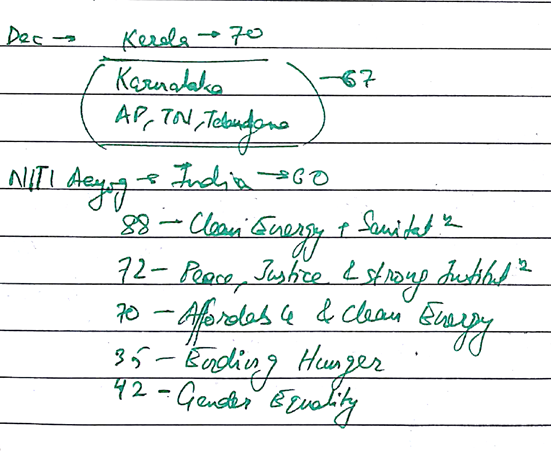 Dec → Kerala → 70
Karnataka
AP, TN, Telangana
— 67
NITI Aayog → India → 60
88 — Clean Energy + Sanitatⁿ
72 — Peace, Justice & strong Institutⁿ
70 — Affordable & Clean Energy
35 — Ending Hunger
42 — Gender Equality